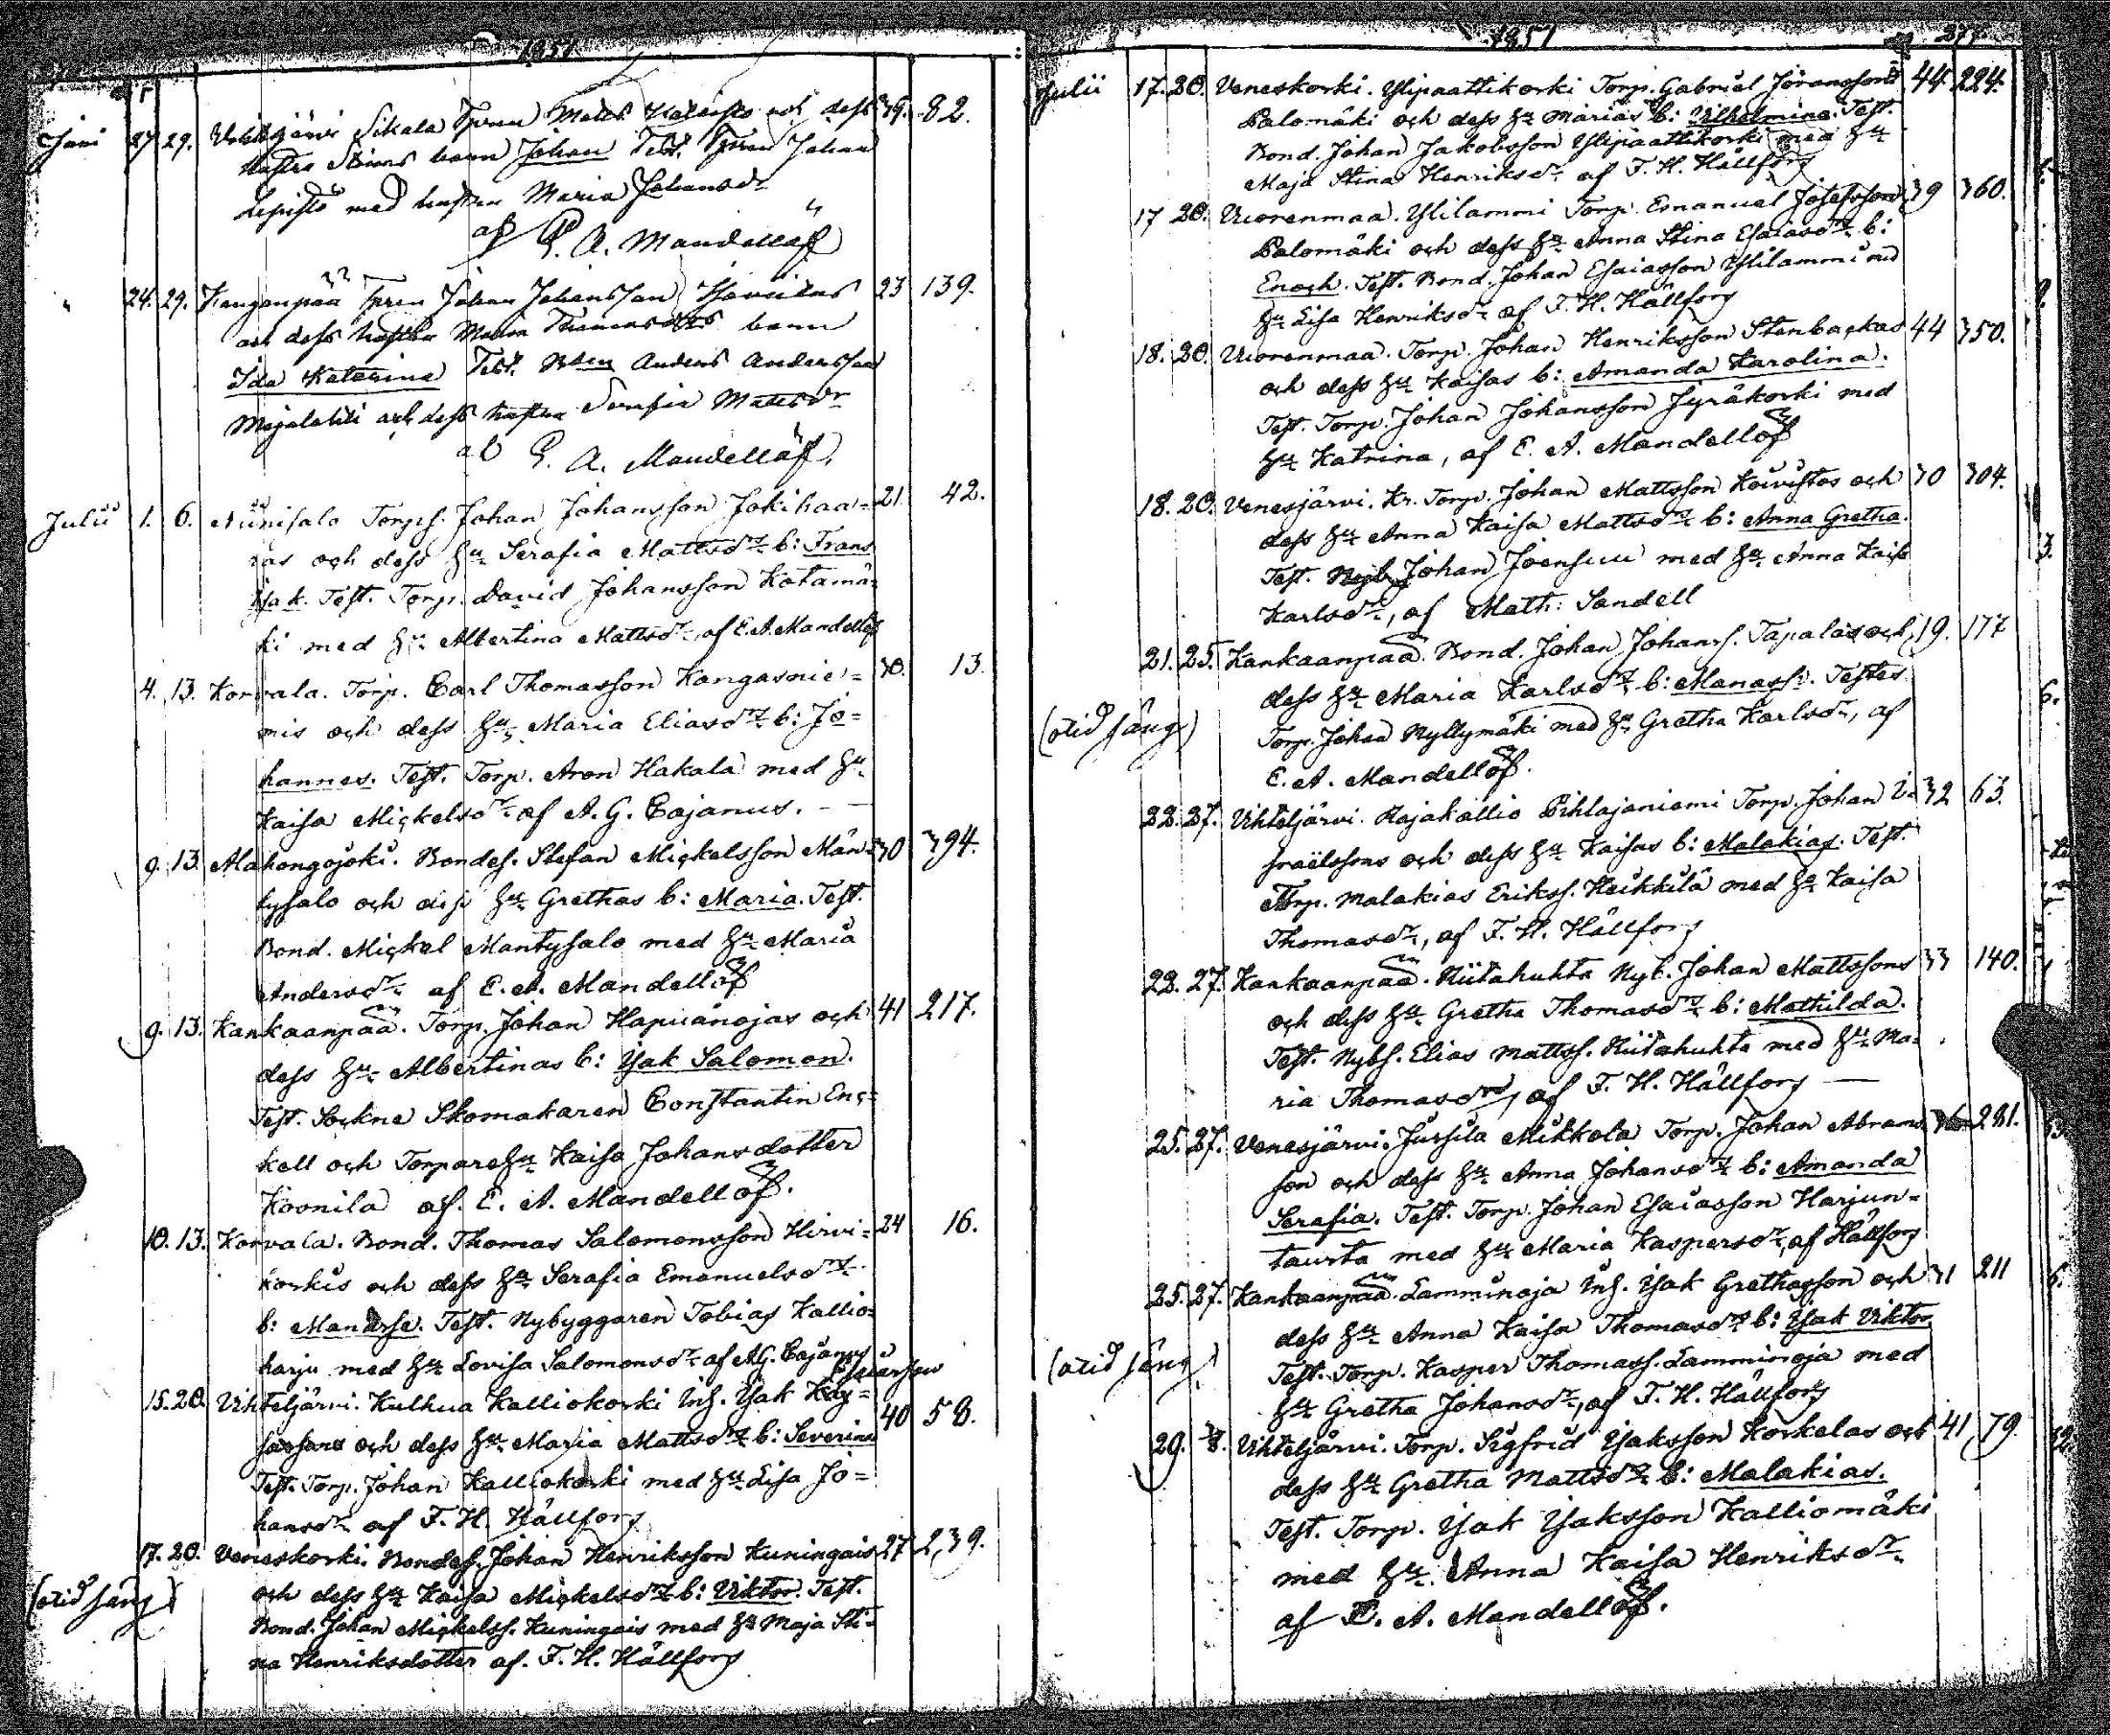 1851.
Juni 27 29. Vihteljärvi Sikala Tpren Matts och dess 39. 82.
hustru Stinas barn Johan Test. Tpren Johan
med hustru Maria Johansdr
af E. A. Mandellöf
24. 29. Kanganpää Tpren Johan Johansson 23 139.
och dess hustru Maria barn
Ida Katarina Test. Anders Andersson
Majalahti och dess hustru Serafia Mattsdr
af E. A. Mandellöf.
Julii 1. 6. Niinisalo Torps. Johan Johansson Jokihaa= 21. 42.
ras och dess hu Serafia Mattsdrs b: Frans
Isak. Test. Torp. David Johansson Kotamä=
ki med hu Albertina Mattsdr, af E. A. Mandellöf
4. 13. Korvala. Torp. Carl Thomasson Kangasnie= 30. 13.
mis och dess hu Maria Eliasdrs b: Jo=
hannes. Test. Torp. Aron Hakala med hu
Kaisa Mickelsdr af A. G. Cajanus. —
9. 13. Alahongojoki. Bondes. Stefan Mickelsson Män= 30 394.
tysalo och dess hu Grethas b: Maria. Test.
Bond. Mickel Mantysalo med hu Maria
Andersdr af E. A. Mandellöf
9. 13. Kankaanpää. Torp. Johan Hapuanojas och 41 217.
dess hu Albertinas b: Isak Salomon.
Test. Sockne Skomakaren Constantin Enc=
kell och Torparehu Kaisa Johansdotter
Koonila af. E. A. Mandellöf.
10. 13. Korvala. Bond. Thomas Salomonsson Hirvi= 24 16.
korkis och dess hu Serafia Emanuelsdrs
b: Manasse. Test. Nybyggaren Tobias Kallio=
harju med hu Lovisa Salomonsdr af A G. Cajanus
Esaiasson
15. 20. Vihteljärvi. Kulhua Kalliokorki Inh. Isak 40 58.
och dess hu Maria Mattsdrs b: Severina
Test. Torp. Johan Kalliokorki med hu Lisa Jo=
hansdr af F. H. Hällfors
17. 20. Veneskorki. Bondes. Johan Henriksson Kuningais 27 239.
(otid säng) och dess hu Kaisa Mickelsdrs b: Viktor. Test.
Bond. Johan Mickelss. Kuningais med hu Maja Sti=
na Henriksdotter af. F. H. Hällfors
1851 277.
Julii 17. 20. Veneskorki. Ylipaattikorki Torp. Gabriel Göranssons 44. 224.
Palomäki och dess hu Marias b: Vilhelmina. Test.
Bond. Johan Jakobsson Ylipaattikorki med hu
Maja Stina Henriksdr af F. H. Hällfors
17 20. Vuorenmaa. Ylilammi Torp. Emanuel Josefsson 39 360.
Palomäki och dess hu Anna Stina Esaiasdrs b:
Enoch. Test. Bond. Johan Esaiasson Ylilammi md
hu Lisa Henriksdr af F. H. Hällfors
18. 20. Vuorenmaa. Torp. Johan Henriksson Stenbackas 44 350.
och dess hu Kaisas b: Amanda Karolina.
Test. Torp. Johan Johansson Jyräkorki med
hu Katrina, af E. A. Mandellöf
18. 20. Venesjärvi. Kr. Torp. Johan Mattsson Koivistos och 30 304.
dess hu Anna Kaisa Mattsdrs b: Anna Gretha.
Test. Nyb. Johan Joensuu med hu Anna Kaisa
Karlsdr, af Math: Sandell
21. 25. Kankaanpää. Bond. Johan Johanss. Tapalas och 19. 177
dess hu Maria Karlsdrs b: Manass. Testes
(otid säng) Torp. Johan Myllymäki med hu Gretha Karlsdr, af
E. A. Mandellöf.
22. 27. Vihteljärvi. Rajakallio Pihlajaniemi Torp. Johan I= 32 63.
sraëlssons och dess hu Kaisas b: Malakias. Test.
Torp. Malakias Erikss. Heikkilä med hu Kaisa
Thomasdr, af F. H. Hällfors
22. 27. Kankaanpää. Riitahuhta Nyb. Johan Mattssons 33 140.
och dess hu Gretha Thomasdrs b: Mathilda.
Test. Nybs. Elias Mattss. Riitahuhta med hu Ma=
ria Thomasdr, af F. H. Hällfors —
25. 27. Venesjärvi. Jussila Mikkola Torp. Johan Abrams= 36 281.
son och dess hu Anna Johansdrs b: Amanda
Serafia. Test. Torp. Johan Esaiasson Harjun=
tausta med hu Maria Kaspersdr, af Hällfors
25. 27. Kankaanpää. Lamminoja Inh. Isak Grethasson och 31 211
dess hu Anna Kaisa Thomasdrs b: Isak Viktor
(otid säng) Test. Torp. Kasper Thomass. Lamminoja med
hu Gretha Johansdr, af F. H. Hällfors
29. 3/8. Vihteljärvi. Torp. Sigfrid Isaksson Korkelas och 41 79.
dess hu Gretha Mattsdrs b: Malakias.
Test. Torp. Isak Isaksson Kalliomäki
med hu Anna Kaisa Henriksdr
af E. A. Mandellöf.